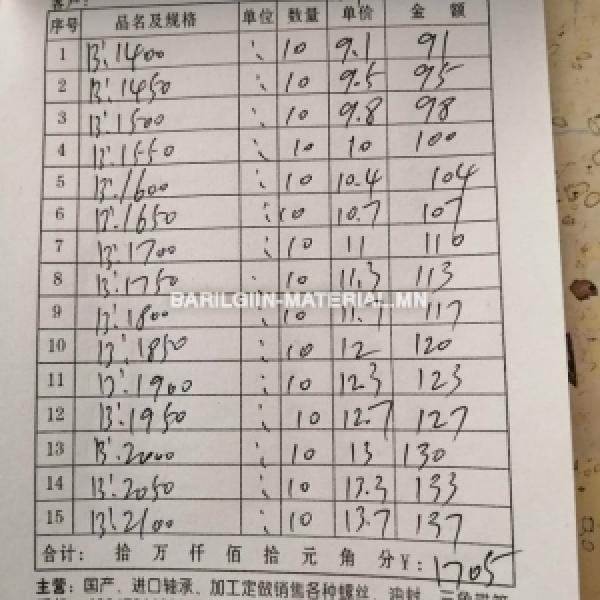 客户：
序号 品名及规格 单位 数量 单价 金 额
1 B'.1400 10 9.1 91
2 B'.1450 10 9.5 95
3 B'.1500 10 9.8 98
4 B'.1550 10 10 100
5 B'.1600 10 10.4 104
6 B'.1650 10 10.7 107
7 B'.1700 10 11 110
8 B'.1750 10 11.3 113
BARILGIIN-MATERIAL.MN
9 B'.1800 10 11.7 117
10 B'.1850 10 12 120
11 B'.1900 10 12.3 123
12 B'.1950 10 12.7 127
13 B'.2000 10 13 130
14 B'.2050 10 13.3 133
15 B'.2100 10 13.7 137
合计： 拾 万 仟 佰 拾 元 角 分￥：1705
主营：国产、进口轴承、加工定做销售各种螺丝、油封、三角带等